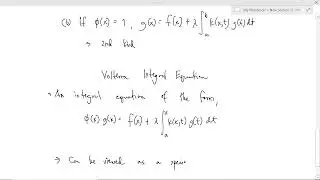 (b) If φ(x) = 1, g(x) = f(x) + λ ∫ₐᵇ K(x,t) g(t) dt
→ 2nd kind
Volterra Integral Equation
→ An integral equation of the form,
φ(x) g(x) = f(x) + λ ∫ₐˣ K(x,t) g(t) dt
→ Can be viewed as a spec